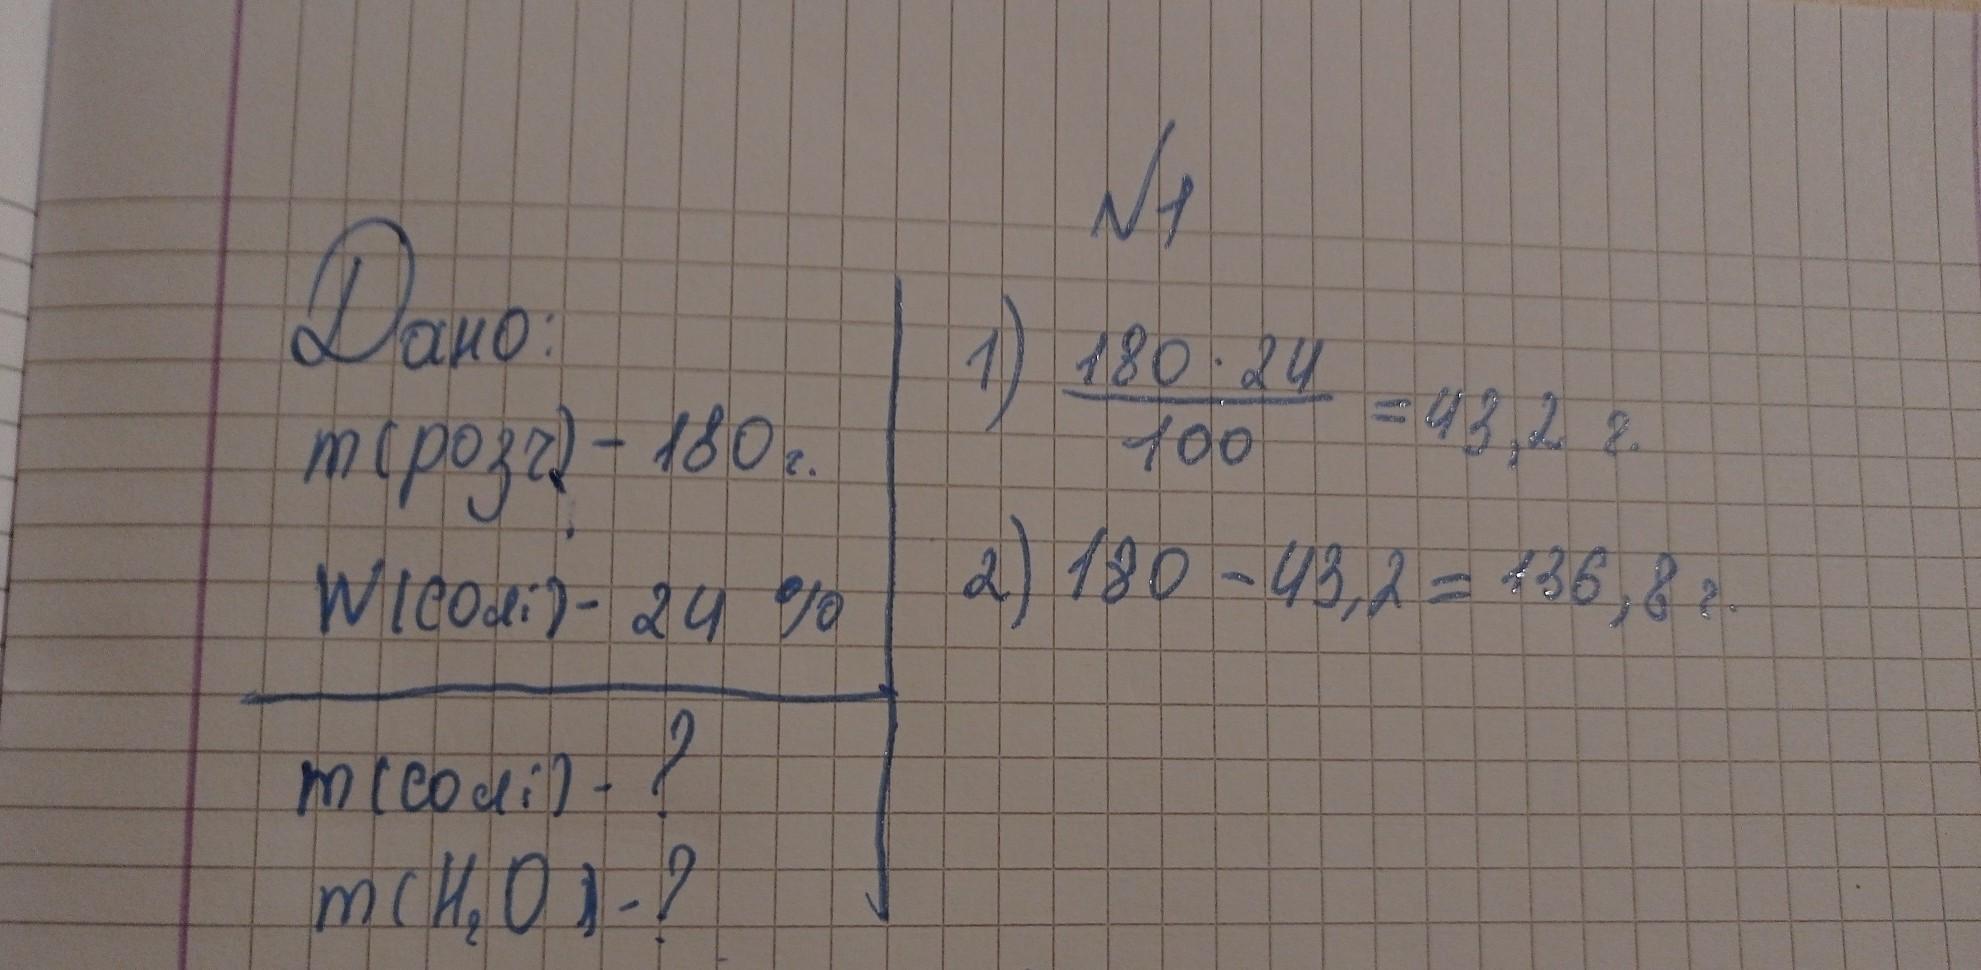 №1
Дано:
m(розч) - 180 г.
W(солі) - 24 %
m(солі) - ?
m(H₂O) - ?
1) \frac{180 · 24}{100} = 43,2 г.
2) 180 - 43,2 = 136,8 г.